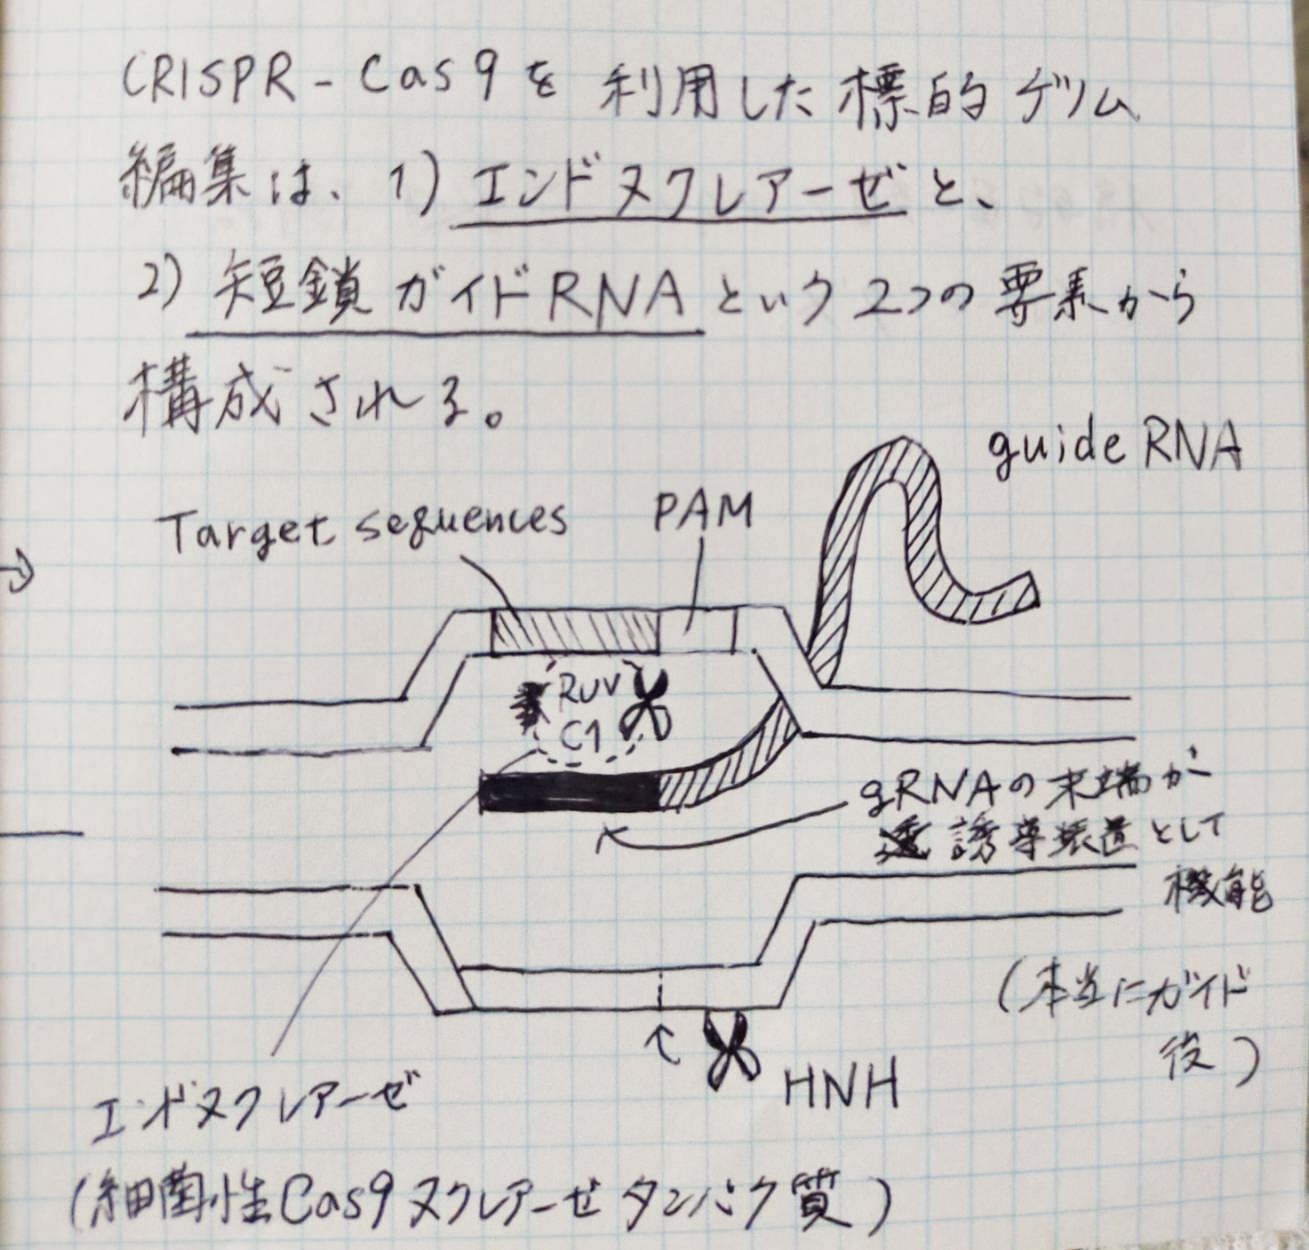 CRISPR-Cas9を利用した標的ゲノム
編集は、1)エンドヌクレアーゼと、
2)短鎖ガイドRNAという2つの要素から
構成される。
guide RNA
Target sequences
PAM
RUV
C1
gRNAの末端が
誘導装置として
機能
(本当にガイド
役)
HNH
エンドヌクレアーゼ
(細菌性Cas9ヌクレアーゼタンパク質)